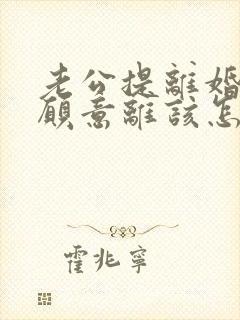 老公提離婚
願意離該怎
霍兆寧